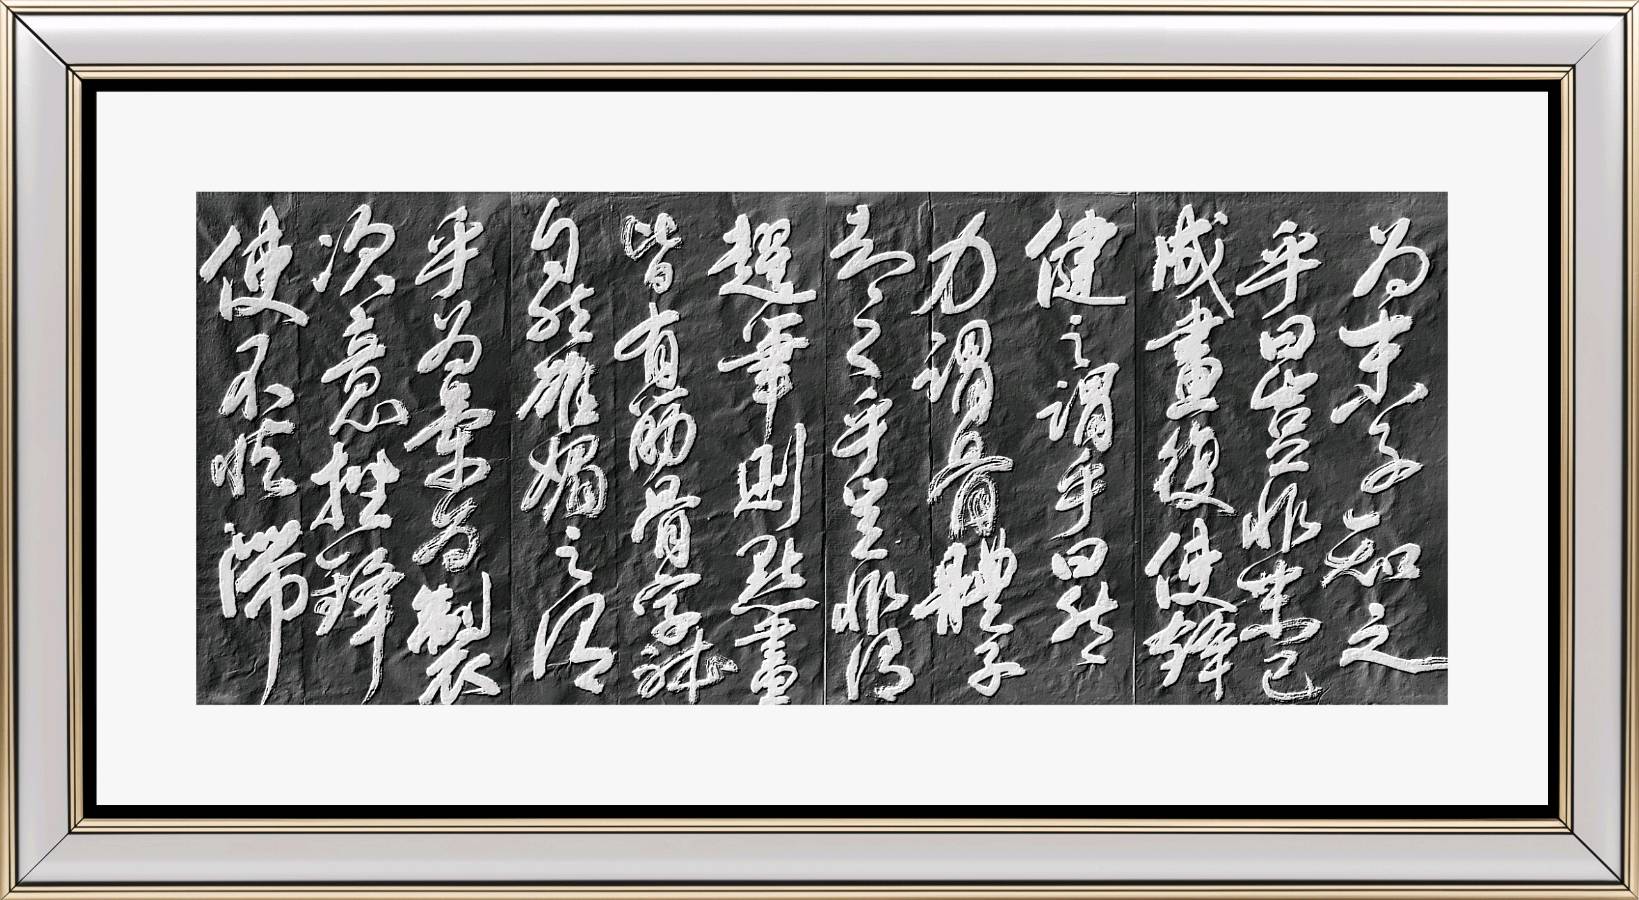 为末子知之
乎曰豈非末已
成畫復使鋒
健之謂乎曰然
力謂骨體子
知之乎豈非謂
趯筆則點畫
皆有筋骨字體
自然雄媚之謂
乎为牽为製
次意挫鋒
使不怯滯